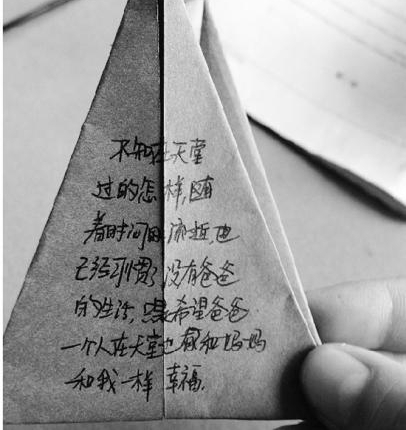 不知在天堂
过的怎样,随
着时间 流逝也
已经习惯了没有爸爸
的生活, 希望爸爸
一个人在天堂也 和妈妈
和我一样 幸福.